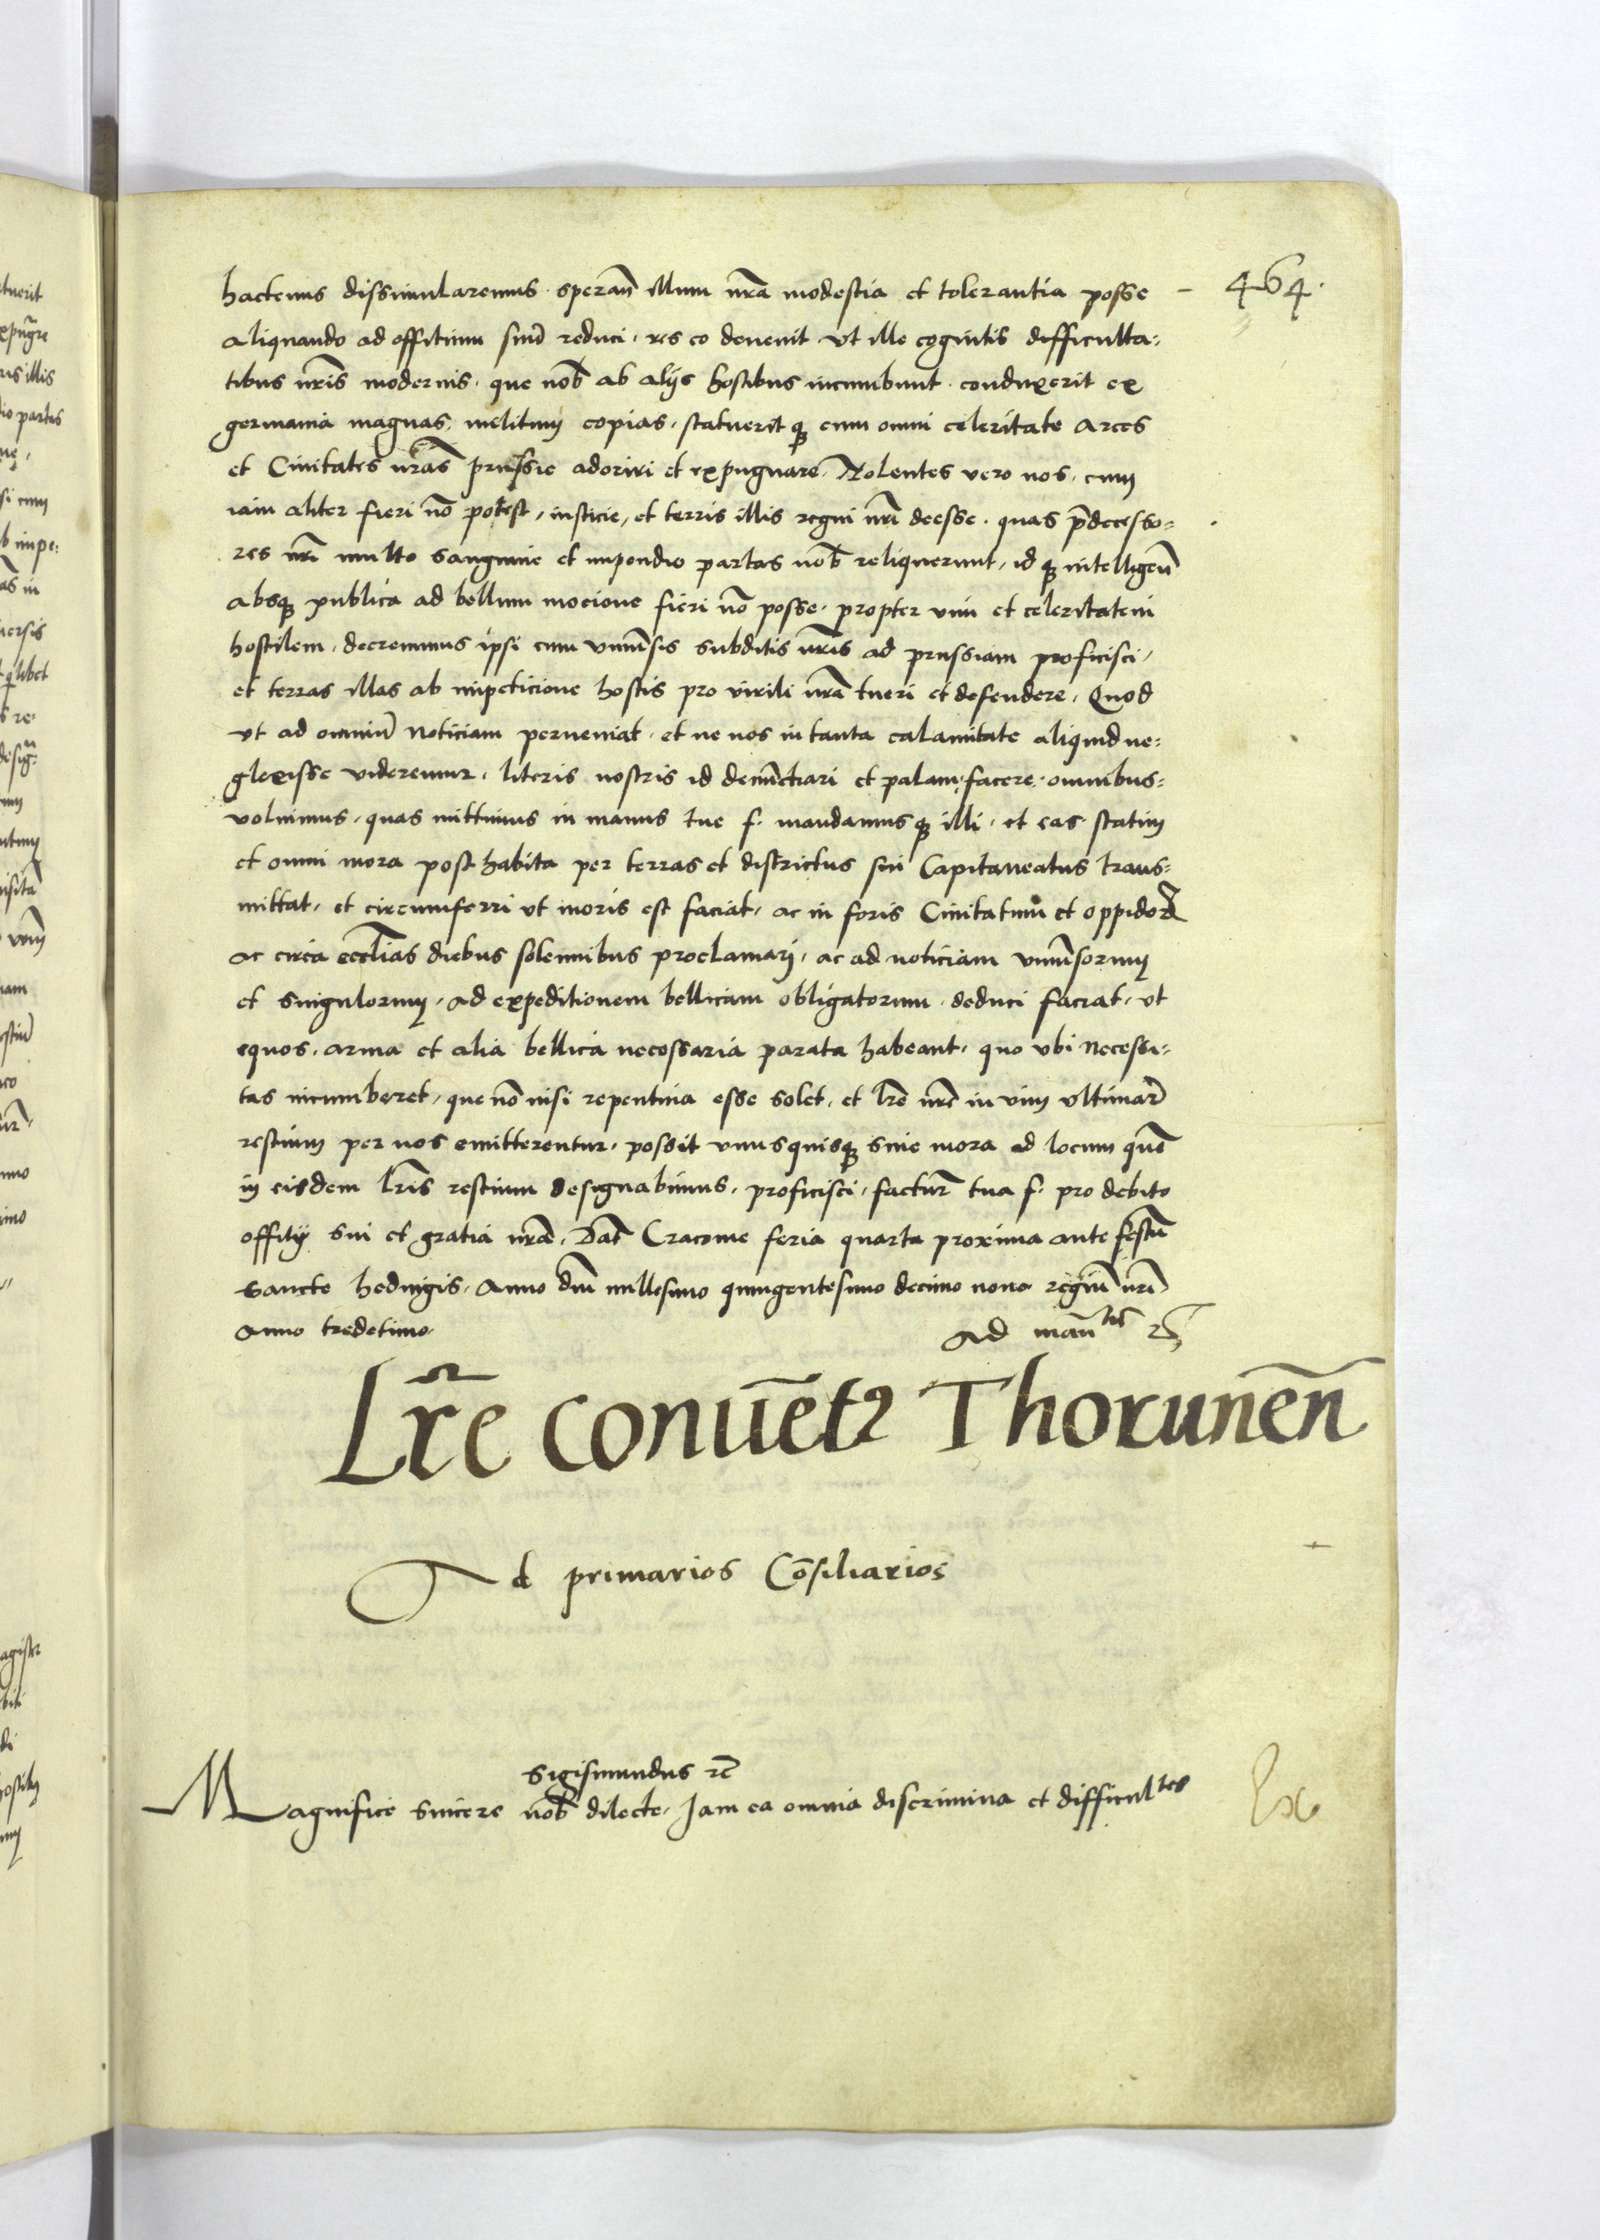 464.
hactenus dissimularemus. sperañ illum nr̃a modestia et tolerantia posse
aliquando ad offitium suũ reduci, res eo devenit vt ille cognitis difficulta:
tibus nr̃is modernis. que nob̃ ab alijs hostibus incumbunt. conduxerit ex
germania magnas, militum copias, statuerit qȝ cum omni celeritate Arces
et Ciuitates nr̃as prussie adoriri et expugnare. Nolentes vero nos, cum
iam aliter fieri nõ potest, iusticie, et terris illis regni nr̃i deesse. quas p̃decesso:
res nr̃i multo sanguine et impendio partas nob̃ reliquerunt, id qȝ intelligeñ
absqȝ publica ad bellum mocione fieri nõ posse, propter vim et celeritatem
hostilem, decreuimus ipsi cum vniũsis subditis nr̃is ad prussiam proficisci,
et terras illas ab impeticione hostis pro virili nr̃a tueri et defendere, Quod
vt ad omniũ noticiam perueniat. et ne nos in tanta calamitate aliquid ne:
glexisse videremur, literis nostris id denũctiari et palam facere omnibus
voluimus, quas mittimus in manus tue f. mandamus qȝ illi, vt eas statim
et omni mora post habita per terras et districtus sui Capitaneatus trans:
mittat, et circumferri vt moris est faciat, ac in foris Ciuitatum et oppidoꝝ
ac circa eccl̃ias diebus solemnibus proclamari, ac ad noticiam vniũsorum
et singulorum, ad expeditionem bellicam obligatorum, deduci faciat, vt
equos, arma et alia bellica necessaria parata habeant, quo vbi necessi:
tas incumberet, que nõ nisi repentina esse solet, et lr̃e nr̃e in vim vltimar̃
restium per nos emitterentur, possit vnusquisqȝ sine mora ad locum quẽ
in eisdem lr̃is restium designabimus, proficisci, factur̃ tua f. pro debito
offitij sui et gratia nr̃a. Dat̃ Cracouie feria quarta proxima ante festũ
sancte hedwigis, Anno dñi millesimo quingentesimo decimo nono regni nr̃i
anno tredetimo.
Ad mañ
Lr̃e conuẽtꝰ Thorunẽn
Ad primarios Cõsiliarios
Sigismundus rc̃
Magnifice sincere nob̃ dilecte. Jam ea omnia discrimina et difficultes
Ex